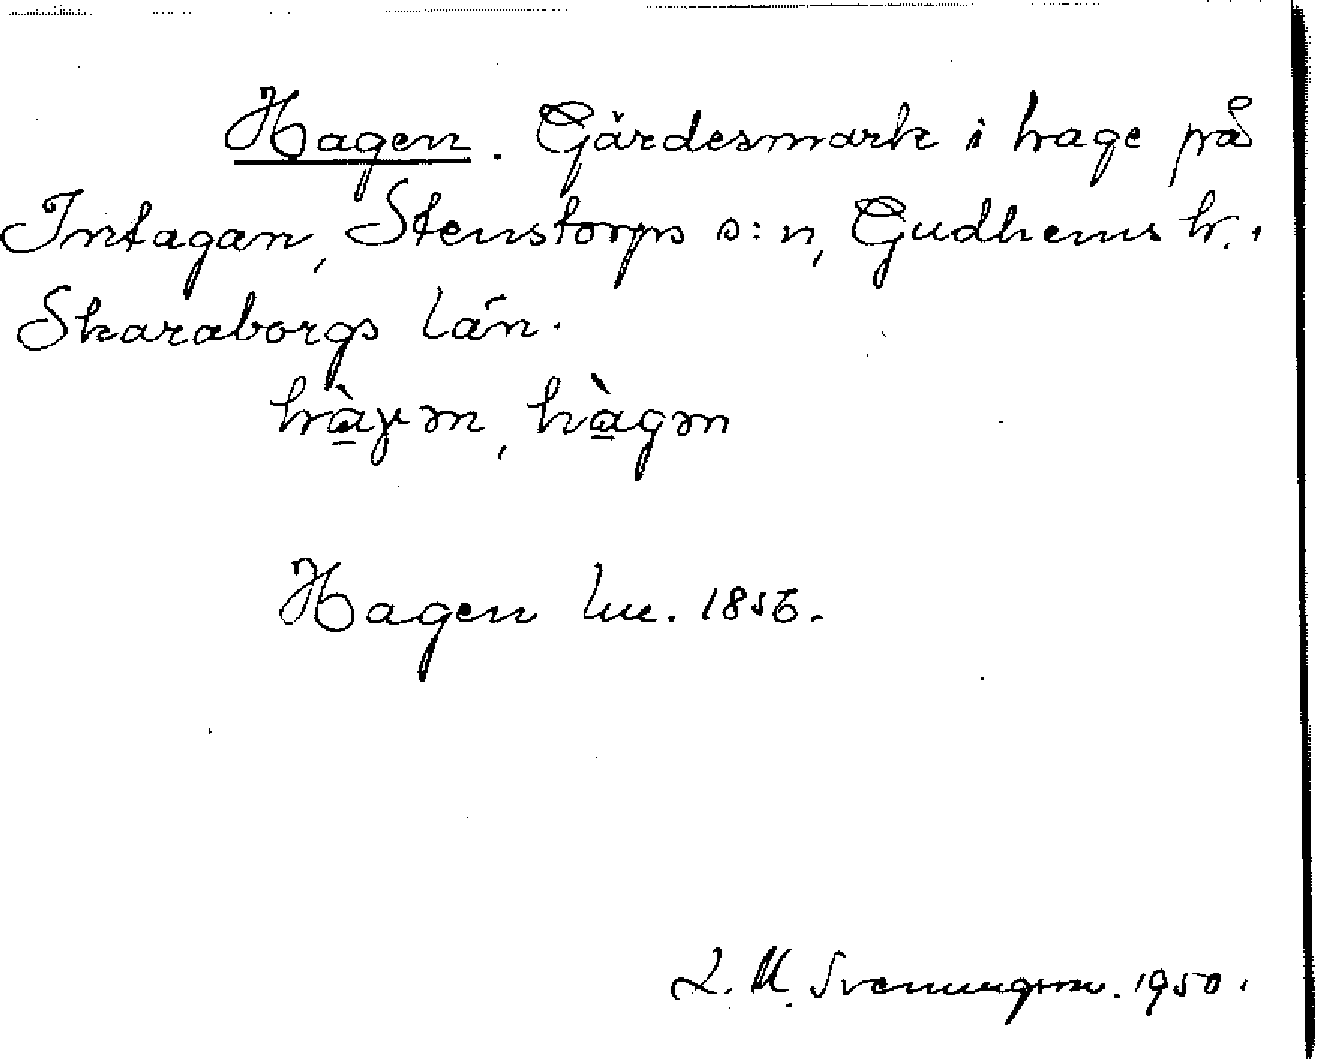 Hagen. Gärdesmark i hage på
Intagan, Stenstorps s:n, Gudhems h.,
Skaraborgs län.
hàɣən, hàgən
Hagen Lm. 1856.
L. M. Svenungsson. 1950.